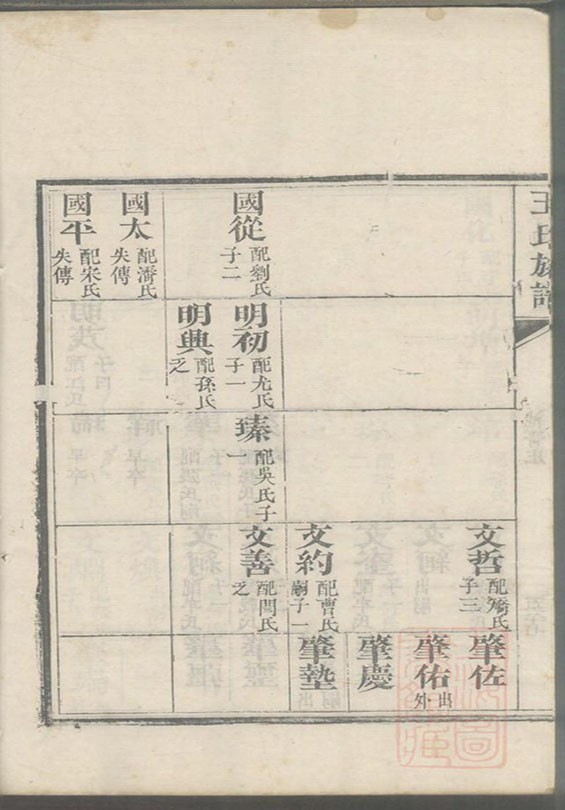 王氏族譜
國從 配劉氏 子二
國太 配潘氏 失傳
國平 配宋氏 失傳
明初 配尤氏 子一
明興 配孫氏 之
臻 配吳氏子一
文哲 配矯氏 子三
文約 配曹氏 嗣子一
文善 配閆氏 之
肇佐
肇佑 出外
肇慶
肇墊